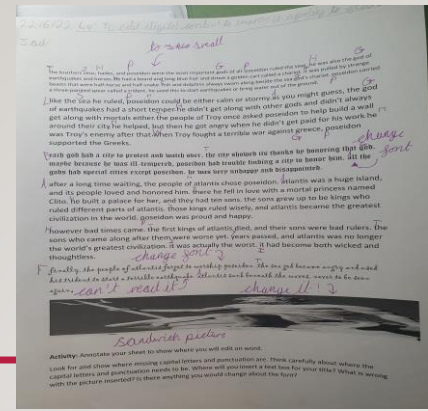 to
small
T Z H P P H G
the brothers zeus, hades, and poseidon were the most important gods of all. poseidon ruled the sea. he was also the god of
earthquakes and horses. He had a beard and long blue hair and drove a golden cart called a chariot. It was pulled by strange
beasts that were half horse and half snake. Fish and dolphins always swam along beside the sea god's chariot. poseidon carried
a three-pointed spear called a trident. he used this to start earthquakes or bring water out of the ground.
like the sea he ruled, poseidon could be either calm or stormy. as you might guess, the god
of earthquakes had a short temper. he didn't get along with other gods and didn't always
get along with mortals either. the people of Troy once asked poseidon to help build a wall
around their city. he helped, but then he got angry when he didn't get paid for his work. he
was Troy's enemy after that. When Troy fought a terrible war against greece, poseidon
supported the Greeks.
G P change
each god had a city to protect and watch over. the city showed its thanks by honoring that god.
font
maybe because he was ill-tempered, poseidon had trouble finding a city to honor him. all the
gods had special cities except poseidon. he was very unhappy and disappointed.
after a long time waiting, the people of atlantis chose poseidon. atlantis was a huge island,
and its people loved and honored him. there he fell in love with a mortal princess named
Clito. he built a palace for her, and they had ten sons. the sons grew up to be kings who
ruled different parts of atlantis. those kings ruled wisely, and atlantis became the greatest
civilization in the world. poseidon was proud and happy.
however bad times came. the first kings of atlantis died, and their sons were bad rulers. the
sons who came along after them were worse yet. years passed, and atlantis was no longer
the world's greatest civilization. it was actually the worst. it had become both wicked and
thoughtless.
change font
F finally, the people of atlantis forgot to worship poseidon. The sea god became angry and used
his trident to start a terrible earthquake. Atlantis sank beneath the waves, never to be seen
again.
can't read it
change it!
sandwich picture
Activity: Annotate your sheet to show where you will edit on word.
Look for and show where missing capital letters and punctuation are. Think carefully about where the
capital letters and punctuation needs to be. Where will you insert a text box for your title? What is wrong
with the picture inserted? Is there anything you would change about the font?